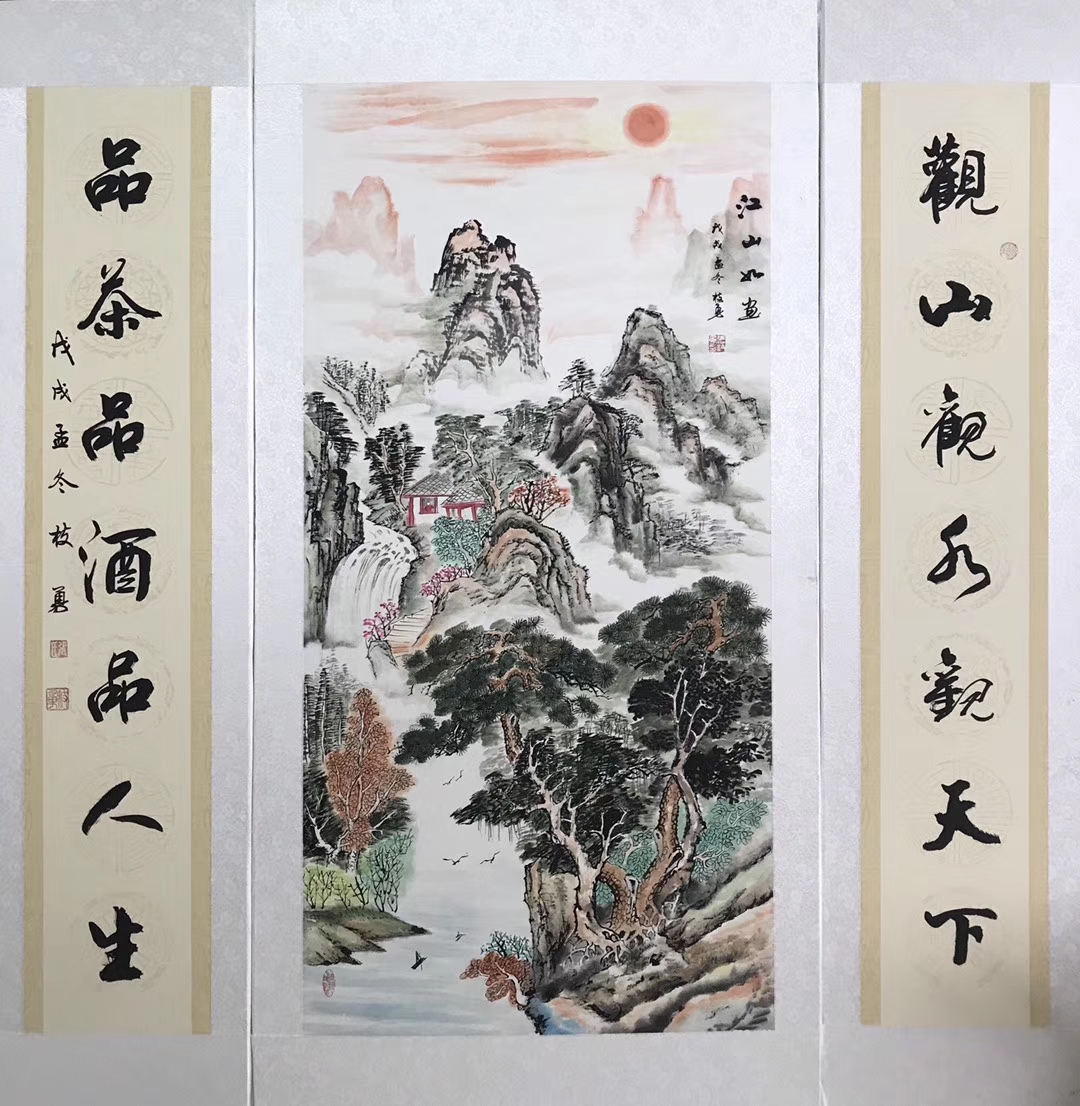 觀山觀水觀天下
江山如畫
戊戌孟冬枝勇
品茶品品酒品人生
戊戌孟冬枝勇